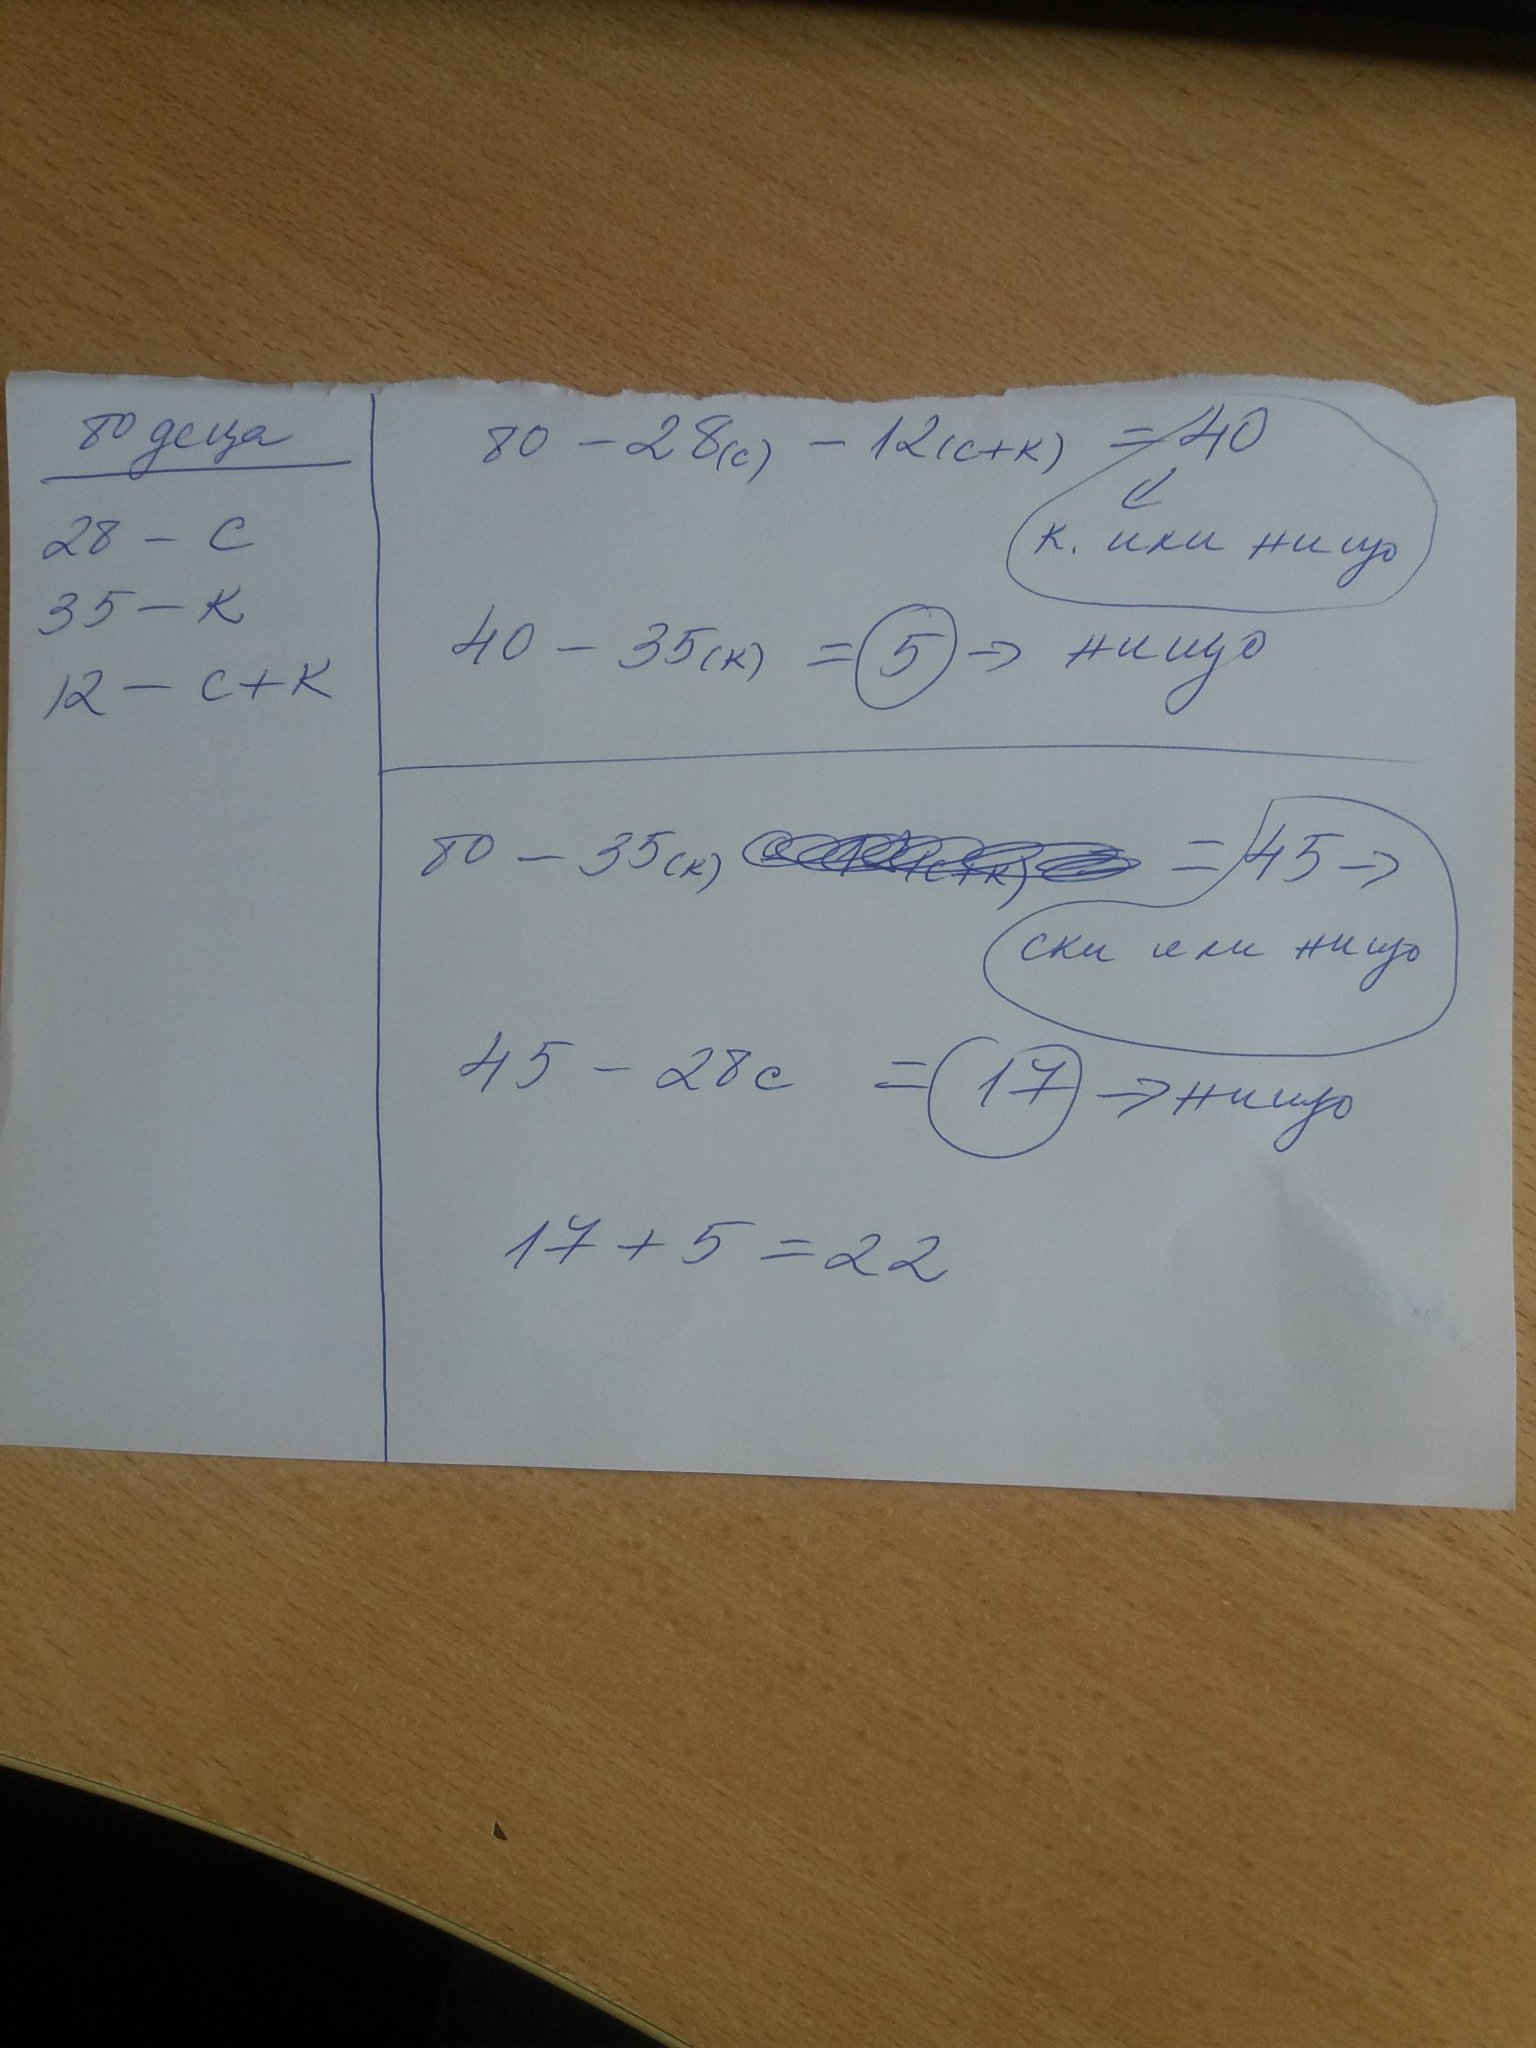 80 деца
28 - С
35 - К
12 - С+К
80 - 28(с) - 12(с+к) = 40
к. или нищо
40 - 35(к) = 5 → нищо
80 - 35(к) = 45 →
ски или нищо
45 - 28с = 17 → нищо
17 + 5 = 22